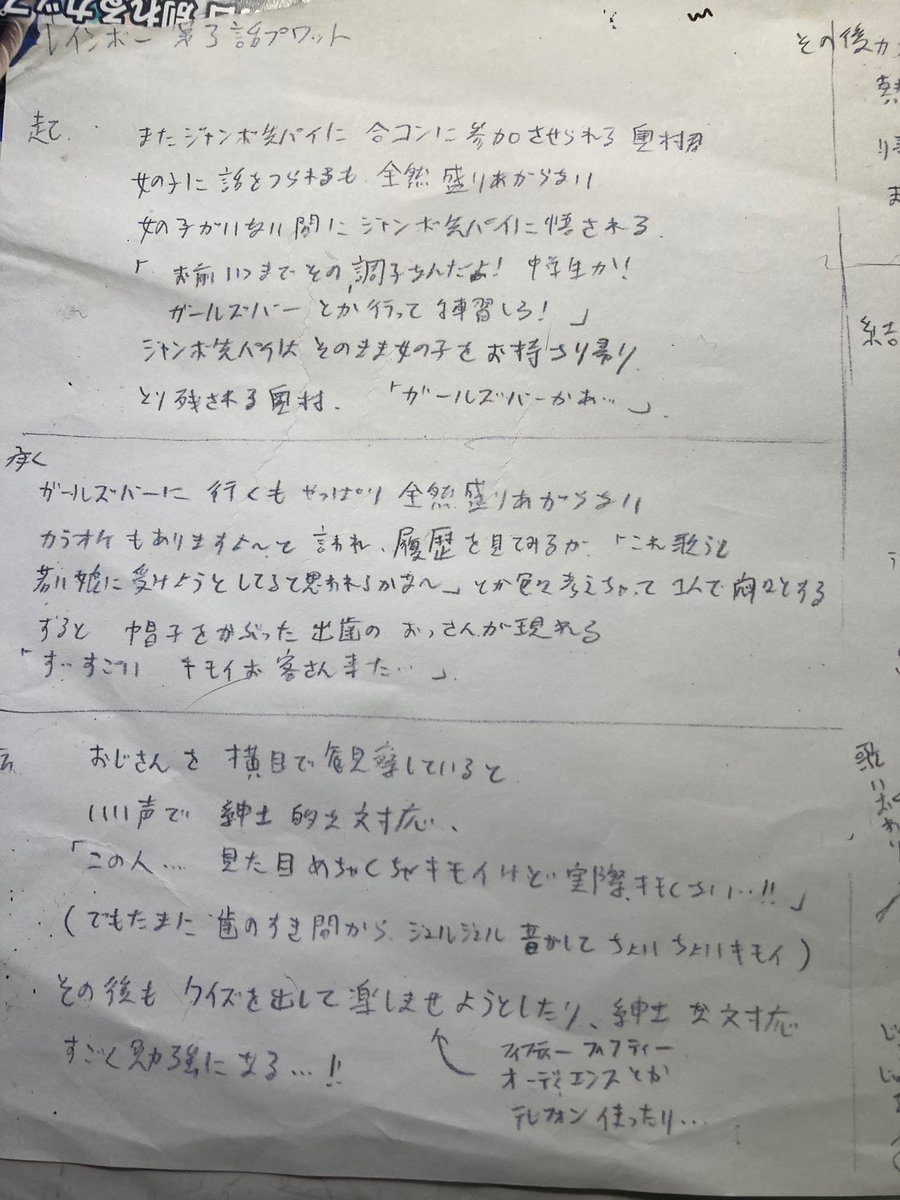 別れるカップ
レインボー 第3話プロット
起て
またジャンボ先パイに 合コンに参加させられる奥村君
女の子に話をふられるも 全然盛りあがらない
女の子がいない間に ジャンボ先パイに悟される
「お前いつまでその調子なんだよ! 中学生か!
ガールズバーとか行って練習しろ!」
ジャンボ先パイは そのまま女の子をお持ち帰り
とり残される奥村. 「ガールズバーかぁ…」
承く
ガールズバーに 行くも やっぱり 全然盛りあがらない
カラオケもありますよ〜と言われ、履歴を見てみるが 「これ歌うと
若い娘に受けようとしてると思われるかな〜」とか色々考えちゃって 1人で悶々とする
すると 帽子をかぶった 出歯の おっさんが現れる
「す…すごい キモイお客さん来た…」
おじさんを 横目で観察していると
いい声で 紳士的な対応、
「この人… 見た目めちゃくちゃキモイけど 実際キモくない…!!」
(でもたまに 歯のすき間から ジュルジュル 音がして ちょいちょいキモイ)
その後も クイズを出して楽しませようとしたり、紳士な対応
フィフティーフィフティー
オーディエンスとか
テレフォン使ったり…
すごく勉強になる…!!
その後カ
結
歌い